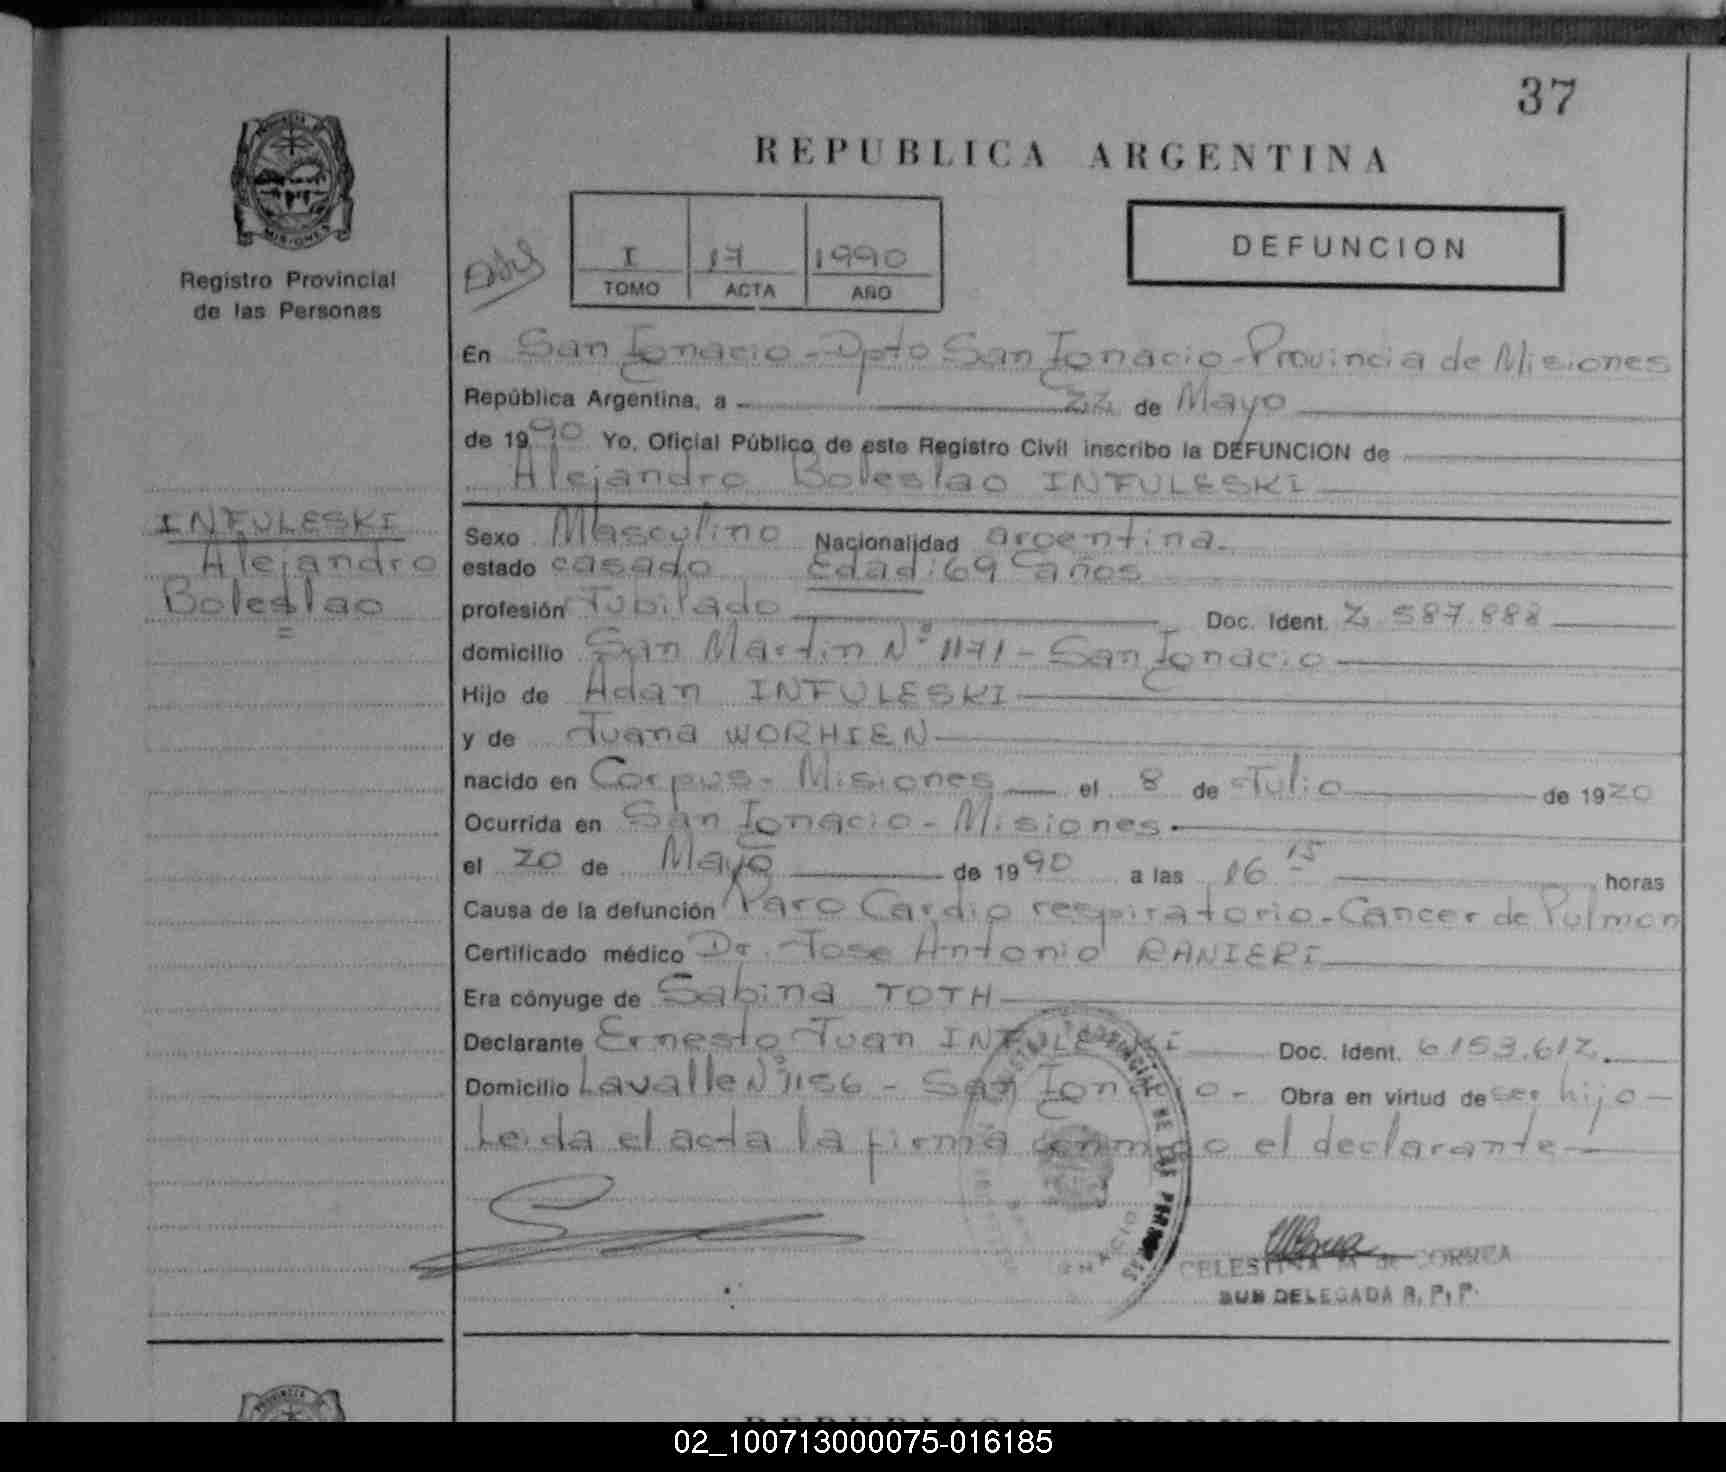 37
REPUBLICA ARGENTINA
PROVINCIA
MISIONES
Registro Provincial
de las Personas
I 17 1990
TOMO ACTA AÑO
DEFUNCION
En San Ignacio - Dpto San Ignacio - Provincia de Misiones
República Argentina, a 22 de Mayo
de 1990 Yo, Oficial Público de este Registro Civil inscribo la DEFUNCION de
Alejandro Boleslao INFULESKI
INFULESKI
Alejandro
Boleslao
Sexo Masculino Nacionalidad argentina.
estado casado Edad: 69 años
profesión Jubilado Doc. Ident. 2.587.888
domicilio San Martin Nº 1171 - San Ignacio
Hijo de Adan INFULESKI
y de Juana WORHIEN
nacido en Corpus - Misiones el 8 de Julio de 1920
Ocurrida en San Ignacio - Misiones.
el 20 de Mayo de 1990 a las 16 15 horas
Causa de la defunción Paro Cardio respiratorio - Cancer de Pulmon
Certificado médico Dr. Jose Antonio RANIERI
Era cónyuge de Sabina TOTH
Declarante Ernesto Juan INFULESKI Doc. Ident. 6153.612.
Domicilio Lavalle Nº 1156 - San Ignacio - Obra en virtud de ser hijo -
Leida el acta la firma conmigo el declarante
CELESTINA M. de CORREA
SUB DELEGADA R. P. P.
PROVINCIA
REPUBLICA ARGENTINA
02_100713000075-016185